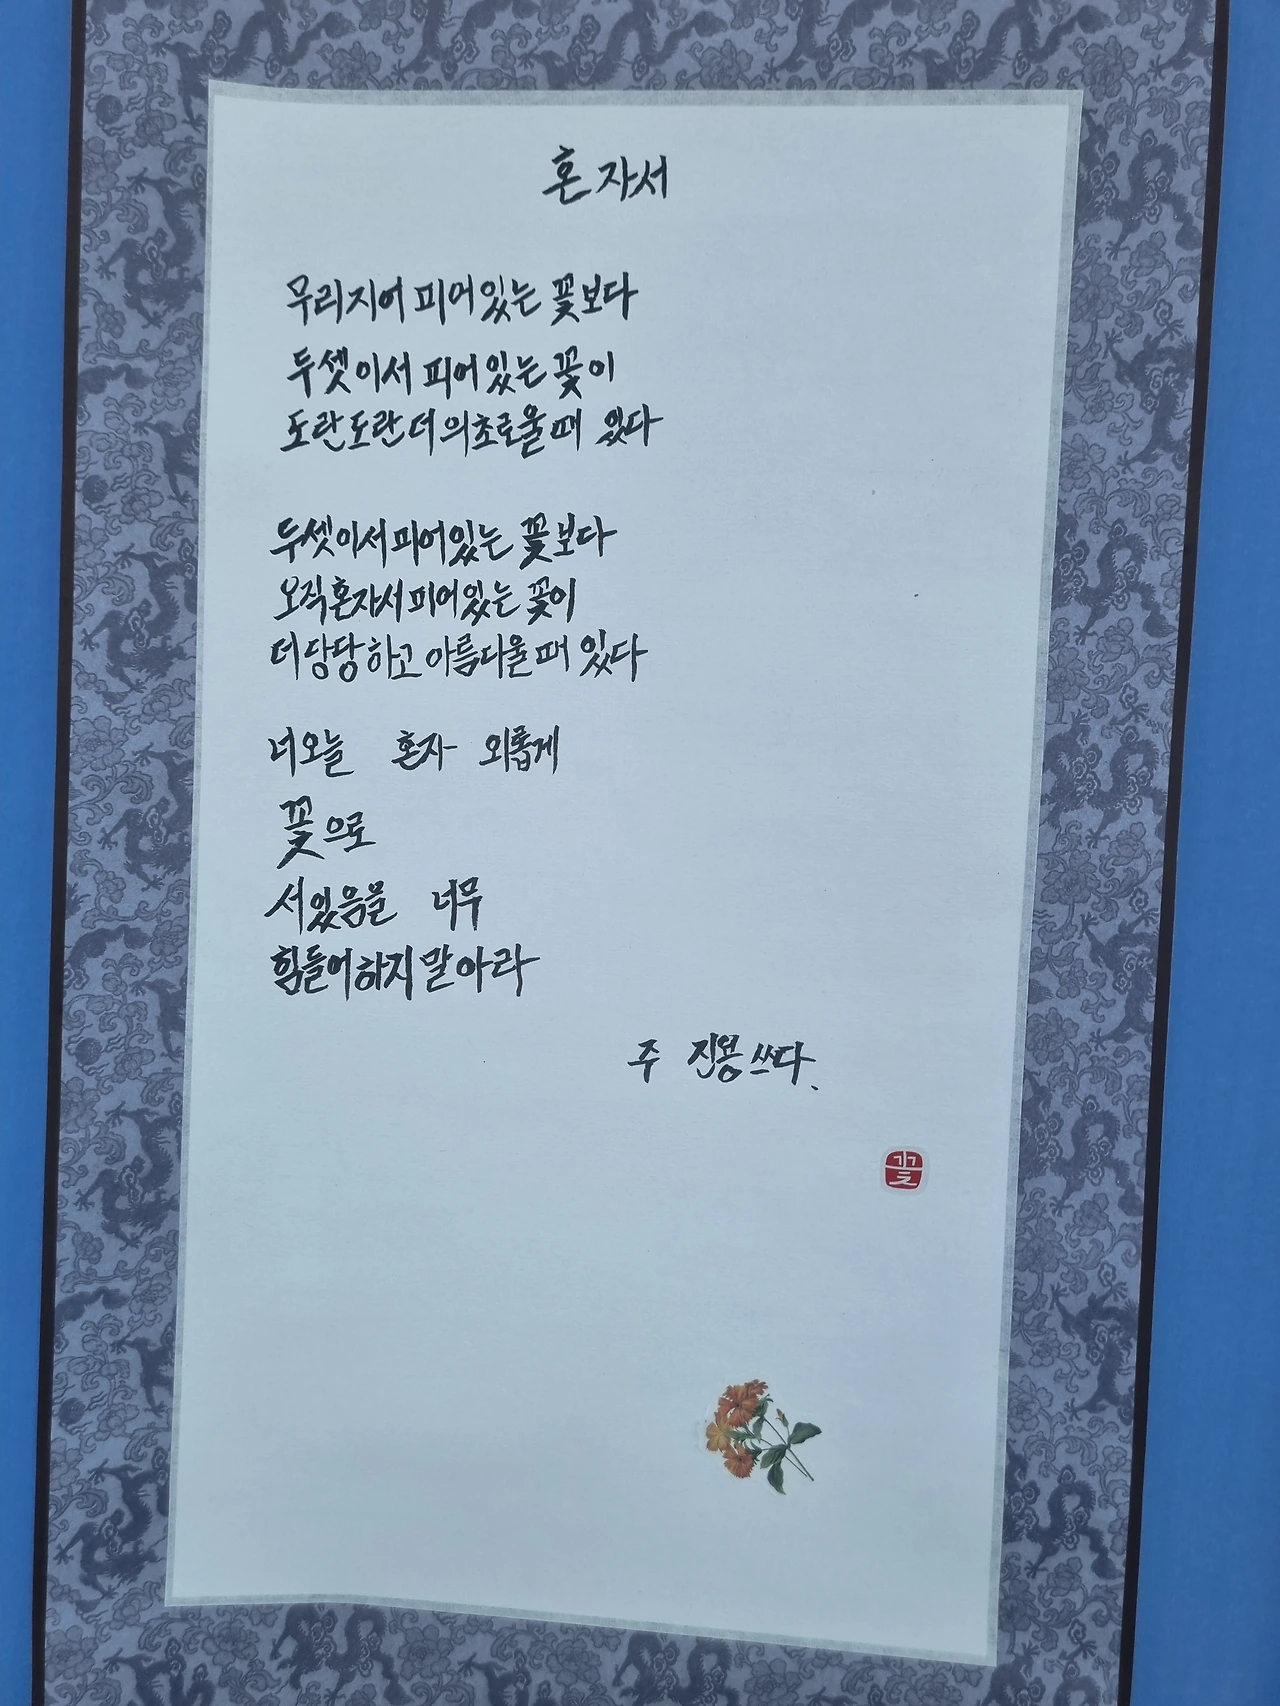 혼자서
무리지어 피어있는 꽃보다
두셋이서 피어있는 꽃이
도란도란 더 의초로울 때 있다
두셋이서 피어있는 꽃보다
오직 혼자서 피어있는 꽃이
더 당당하고 아름다울 때 있다
너 오늘 혼자 외롭게
꽃으로
서있음을 너무
힘들어하지 말아라
주 진용 쓰다.
꽃